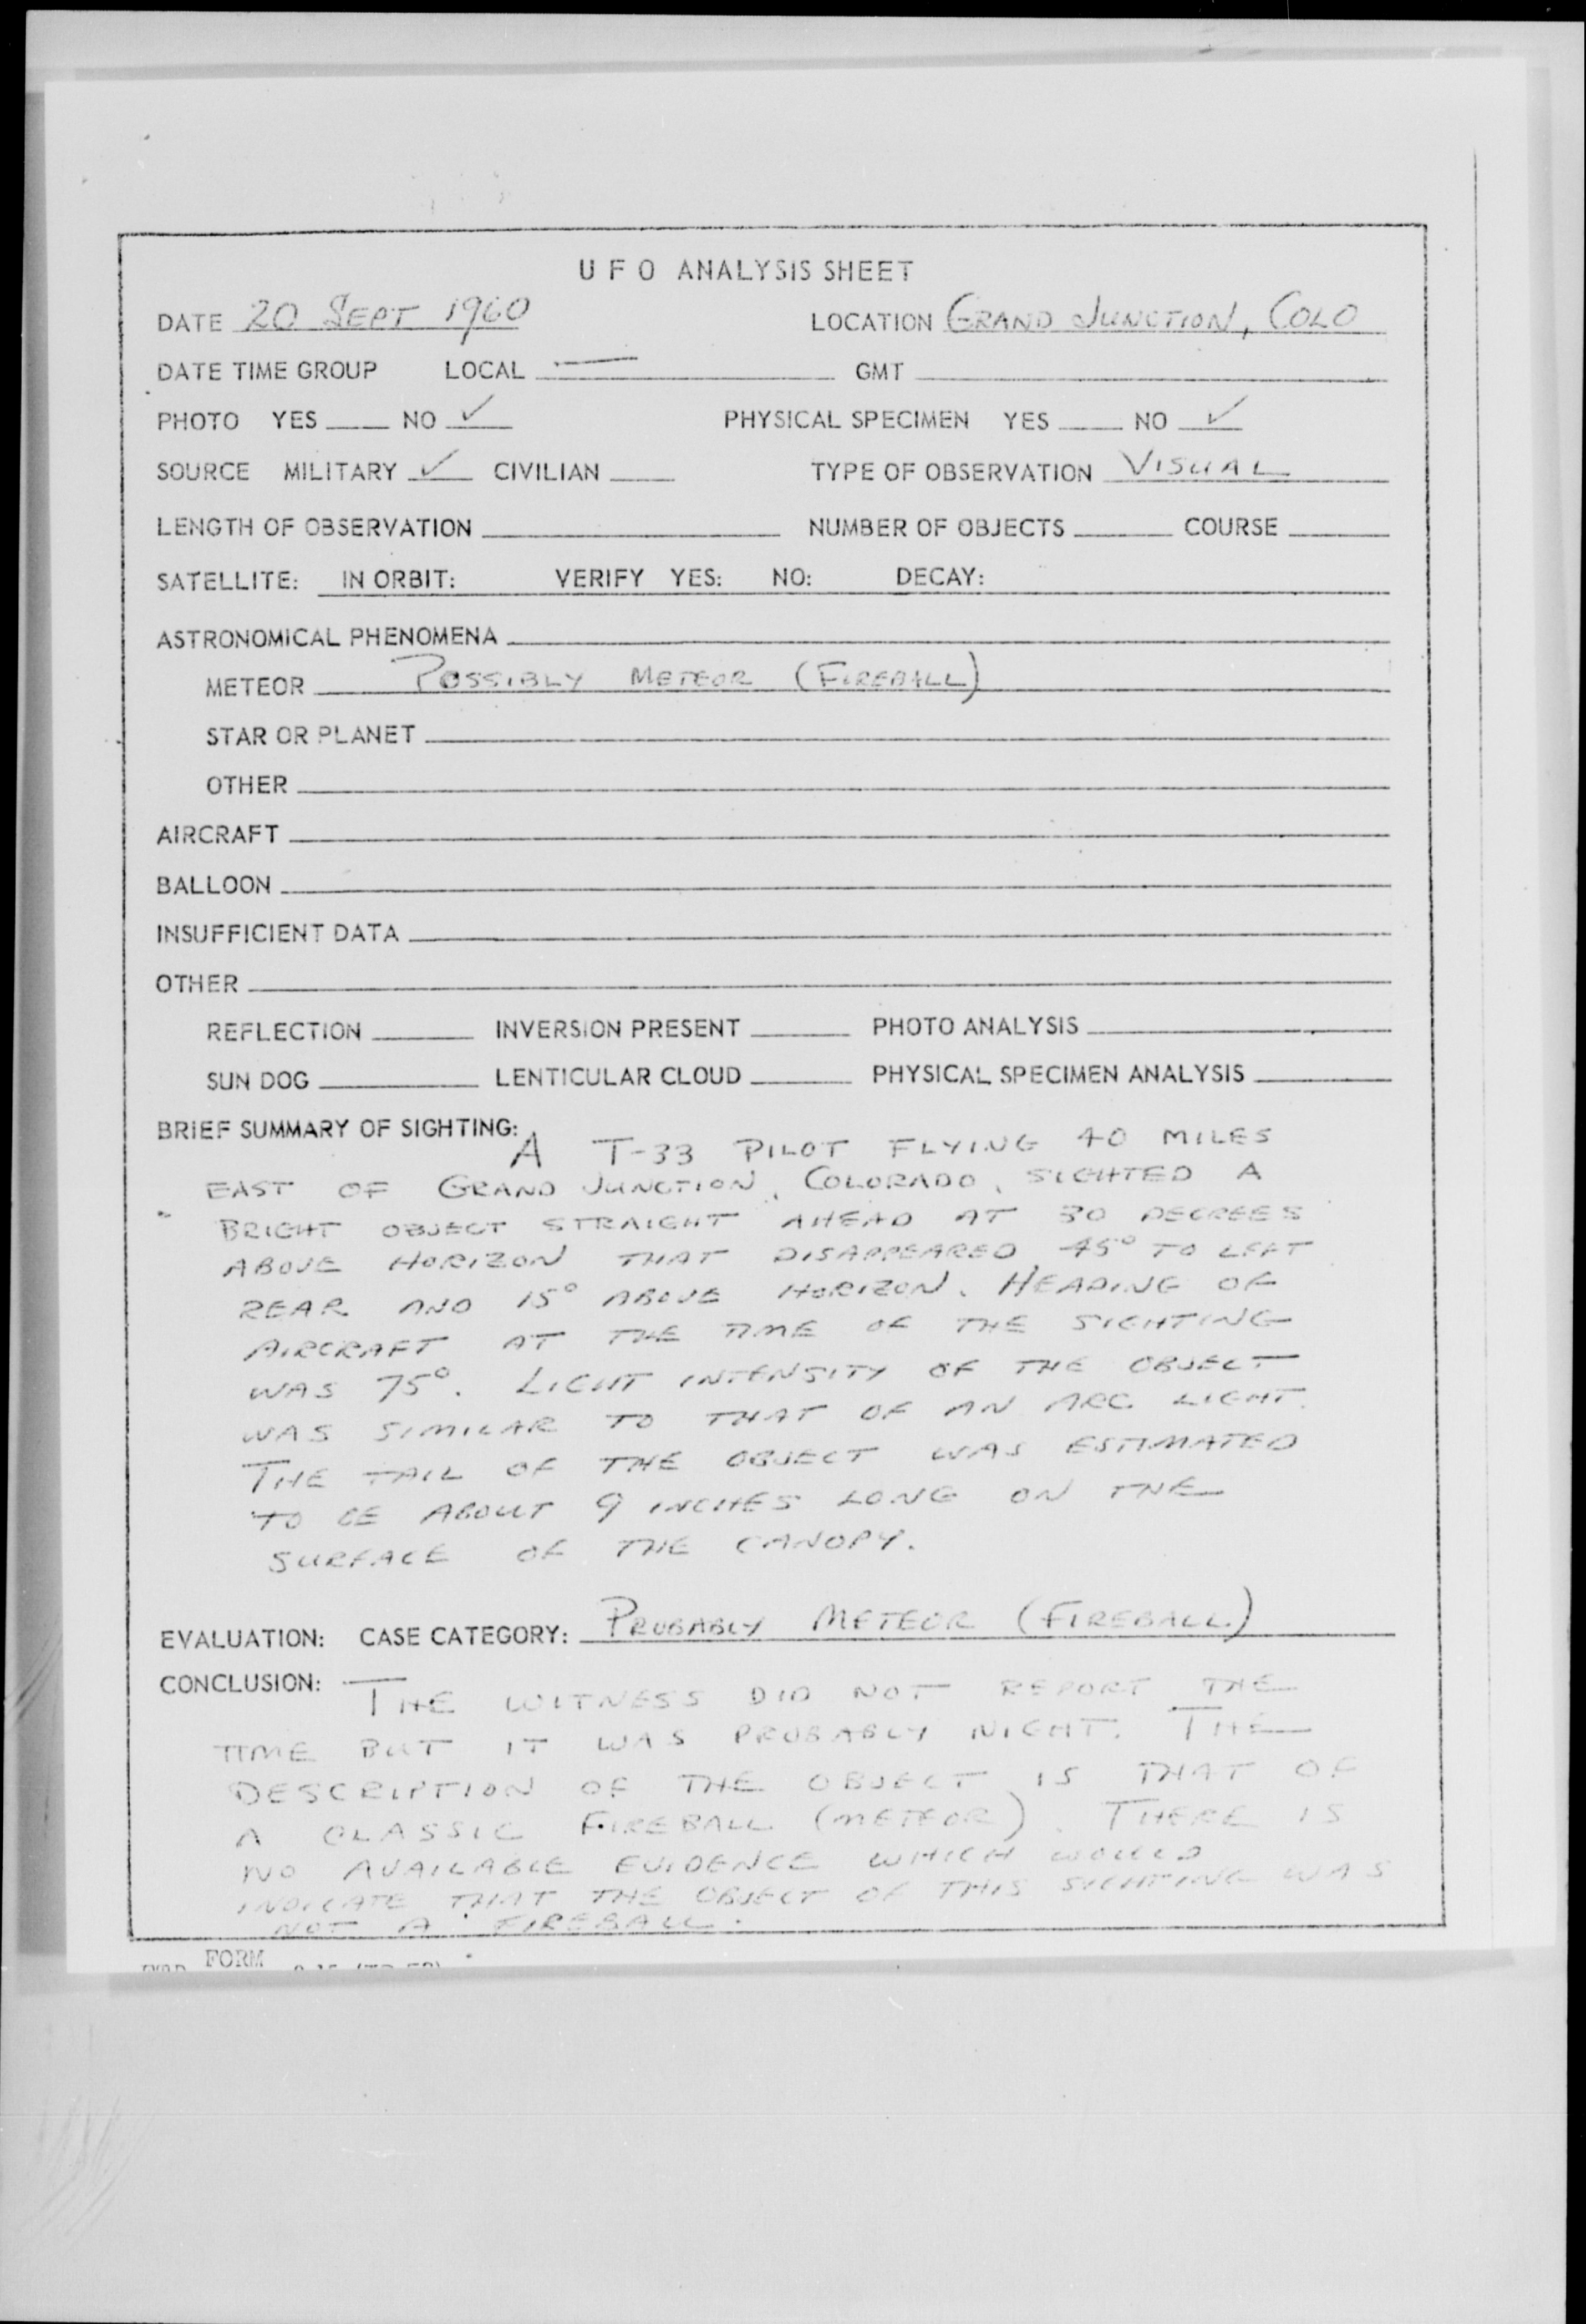 UFO ANALYSIS SHEET
DATE 20 SEPT 1960 LOCATION GRAND JUNCTION, COLO
DATE TIME GROUP LOCAL — GMT
PHOTO YES NO ✓ PHYSICAL SPECIMEN YES NO ✓
SOURCE MILITARY ✓ CIVILIAN TYPE OF OBSERVATION VISUAL
LENGTH OF OBSERVATION NUMBER OF OBJECTS COURSE
SATELLITE: IN ORBIT: VERIFY YES: NO: DECAY:
ASTRONOMICAL PHENOMENA
METEOR POSSIBLY METEOR (FIREBALL)
STAR OR PLANET
OTHER
AIRCRAFT
BALLOON
INSUFFICIENT DATA
OTHER
REFLECTION INVERSION PRESENT PHOTO ANALYSIS
SUN DOG LENTICULAR CLOUD PHYSICAL SPECIMEN ANALYSIS
BRIEF SUMMARY OF SIGHTING: A T-33 PILOT FLYING 40 MILES
EAST OF GRAND JUNCTION, COLORADO, SIGHTED A
BRIGHT OBJECT STRAIGHT AHEAD AT 30 DEGREES
ABOVE HORIZON THAT DISAPPEARED 45° TO LEFT
REAR AND 15° ABOVE HORIZON. HEADING OF
AIRCRAFT AT THE TIME OF THE SIGHTING
WAS 75°. LIGHT INTENSITY OF THE OBJECT
WAS SIMILAR TO THAT OF AN ARC LIGHT.
THE TAIL OF THE OBJECT WAS ESTIMATED
TO BE ABOUT 9 INCHES LONG ON THE
SURFACE OF THE CANOPY.
EVALUATION: CASE CATEGORY: PROBABLY METEOR (FIREBALL)
CONCLUSION: THE WITNESS DID NOT REPORT THE
TIME BUT IT WAS PROBABLY NIGHT. THE
DESCRIPTION OF THE OBJECT IS THAT OF
A CLASSIC FIREBALL (METEOR). THERE IS
NO AVAILABLE EVIDENCE WHICH WOULD
INDICATE THAT THE OBJECT OF THIS SIGHTING WAS
NOT A FIREBALL.
FORM